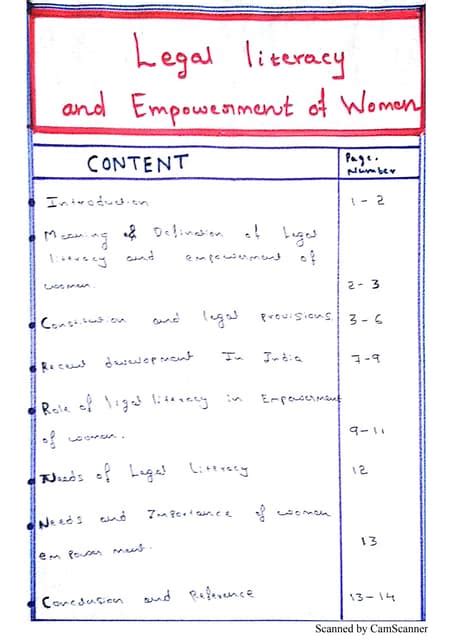 Legal literacy
and Empowerment of Women
CONTENT
Page.
Number
Introduction
1 - 2
Meaning & Defination of Legal
literacy and empowerment of
women.
2 - 3
Constitution and legal provisions
3 - 6
Recent development In India
7 - 9
Role of legal literacy in Empowerment
of women.
9 - 11
Needs of Legal Literacy
12
Needs and Importance of women
em power ment.
13
Conclusion and Reference
13 - 14
Scanned by CamScanner